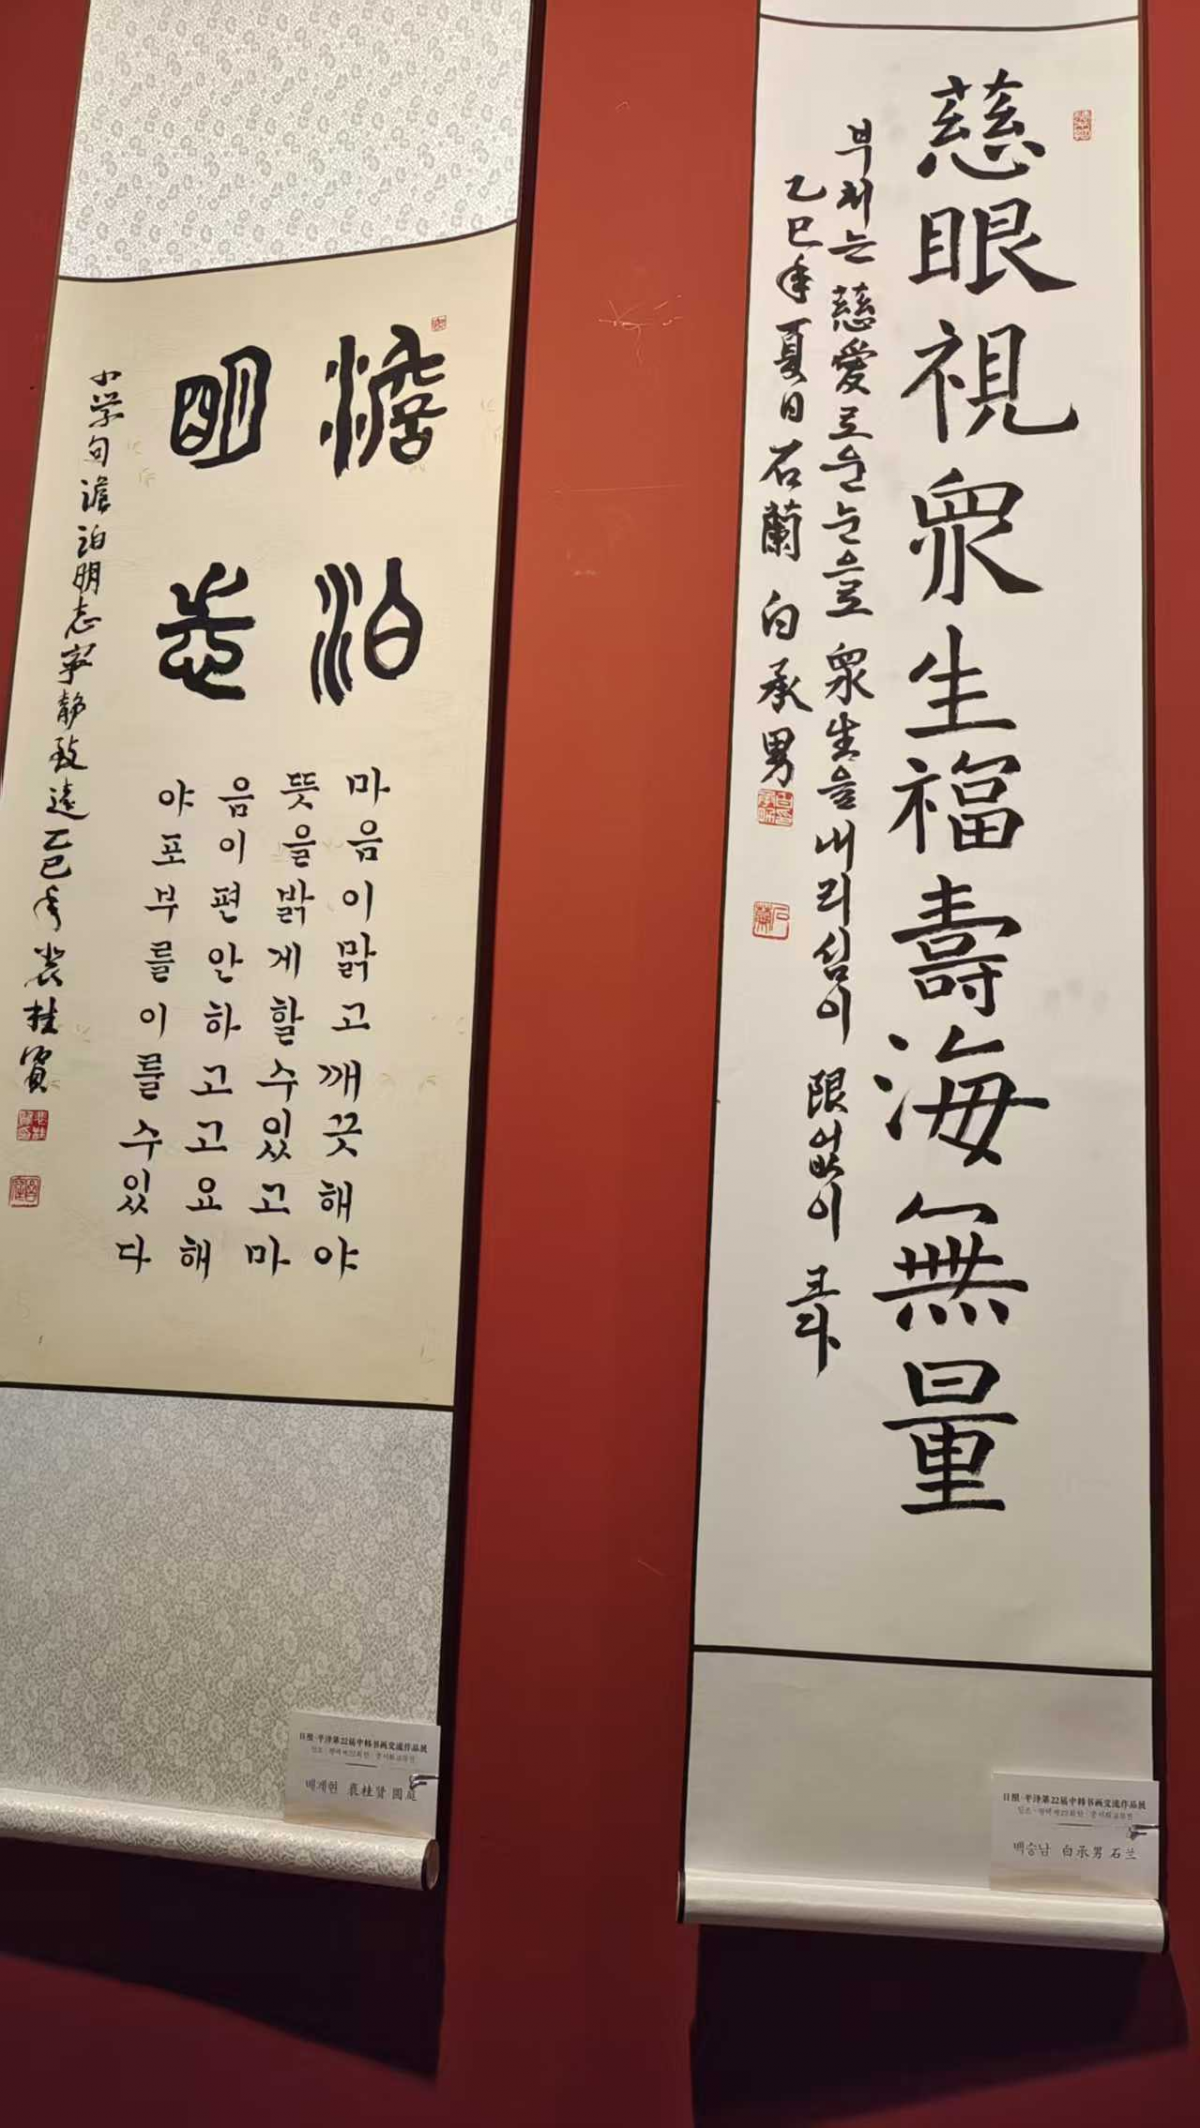 慈眼視衆生福壽海無量
부처는 慈愛로운 눈으로 衆生을 내리심이 限없이 크다
乙巳年夏日石蘭 白承男
澹泊
明志
마음이맑고깨끗해야
뜻을밝게할수있고마
음이편안하고고요해
야포부를이룰수있다
小学句澹泊明志寧静致遠乙巳年裵桂賢
日照·平泽第22届中韩书画交流作品展
배계현 裵桂贤 圆庭
日照·平泽第22届中韩书画交流作品展
백승남 白承男 石兰